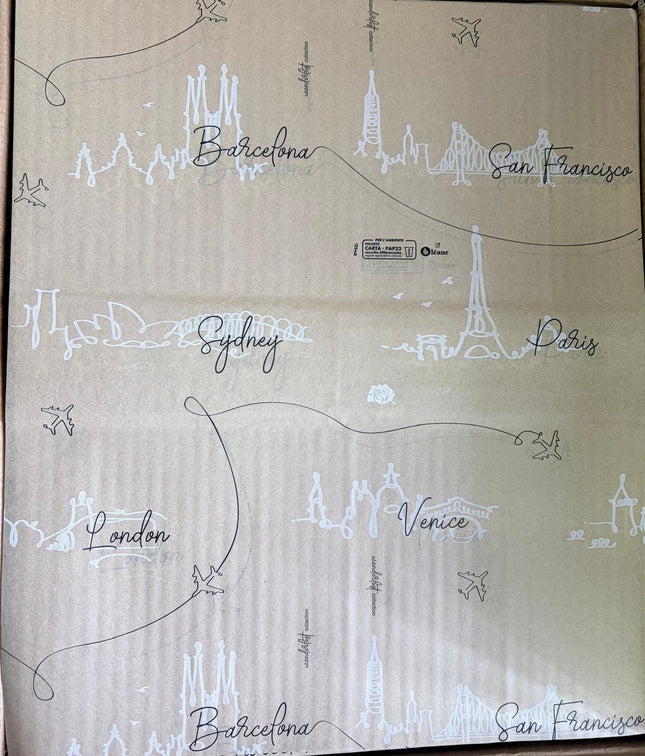 wanderlust collection
wanderlust collection
Barcelona
San Francisco
PER L'AMBIENTE
CARTA - PAP22
raccolta differenziata
Oléane
Sydney
Paris
London
Venice
wanderlust collection
wanderlust collection
Barcelona
San Francisco